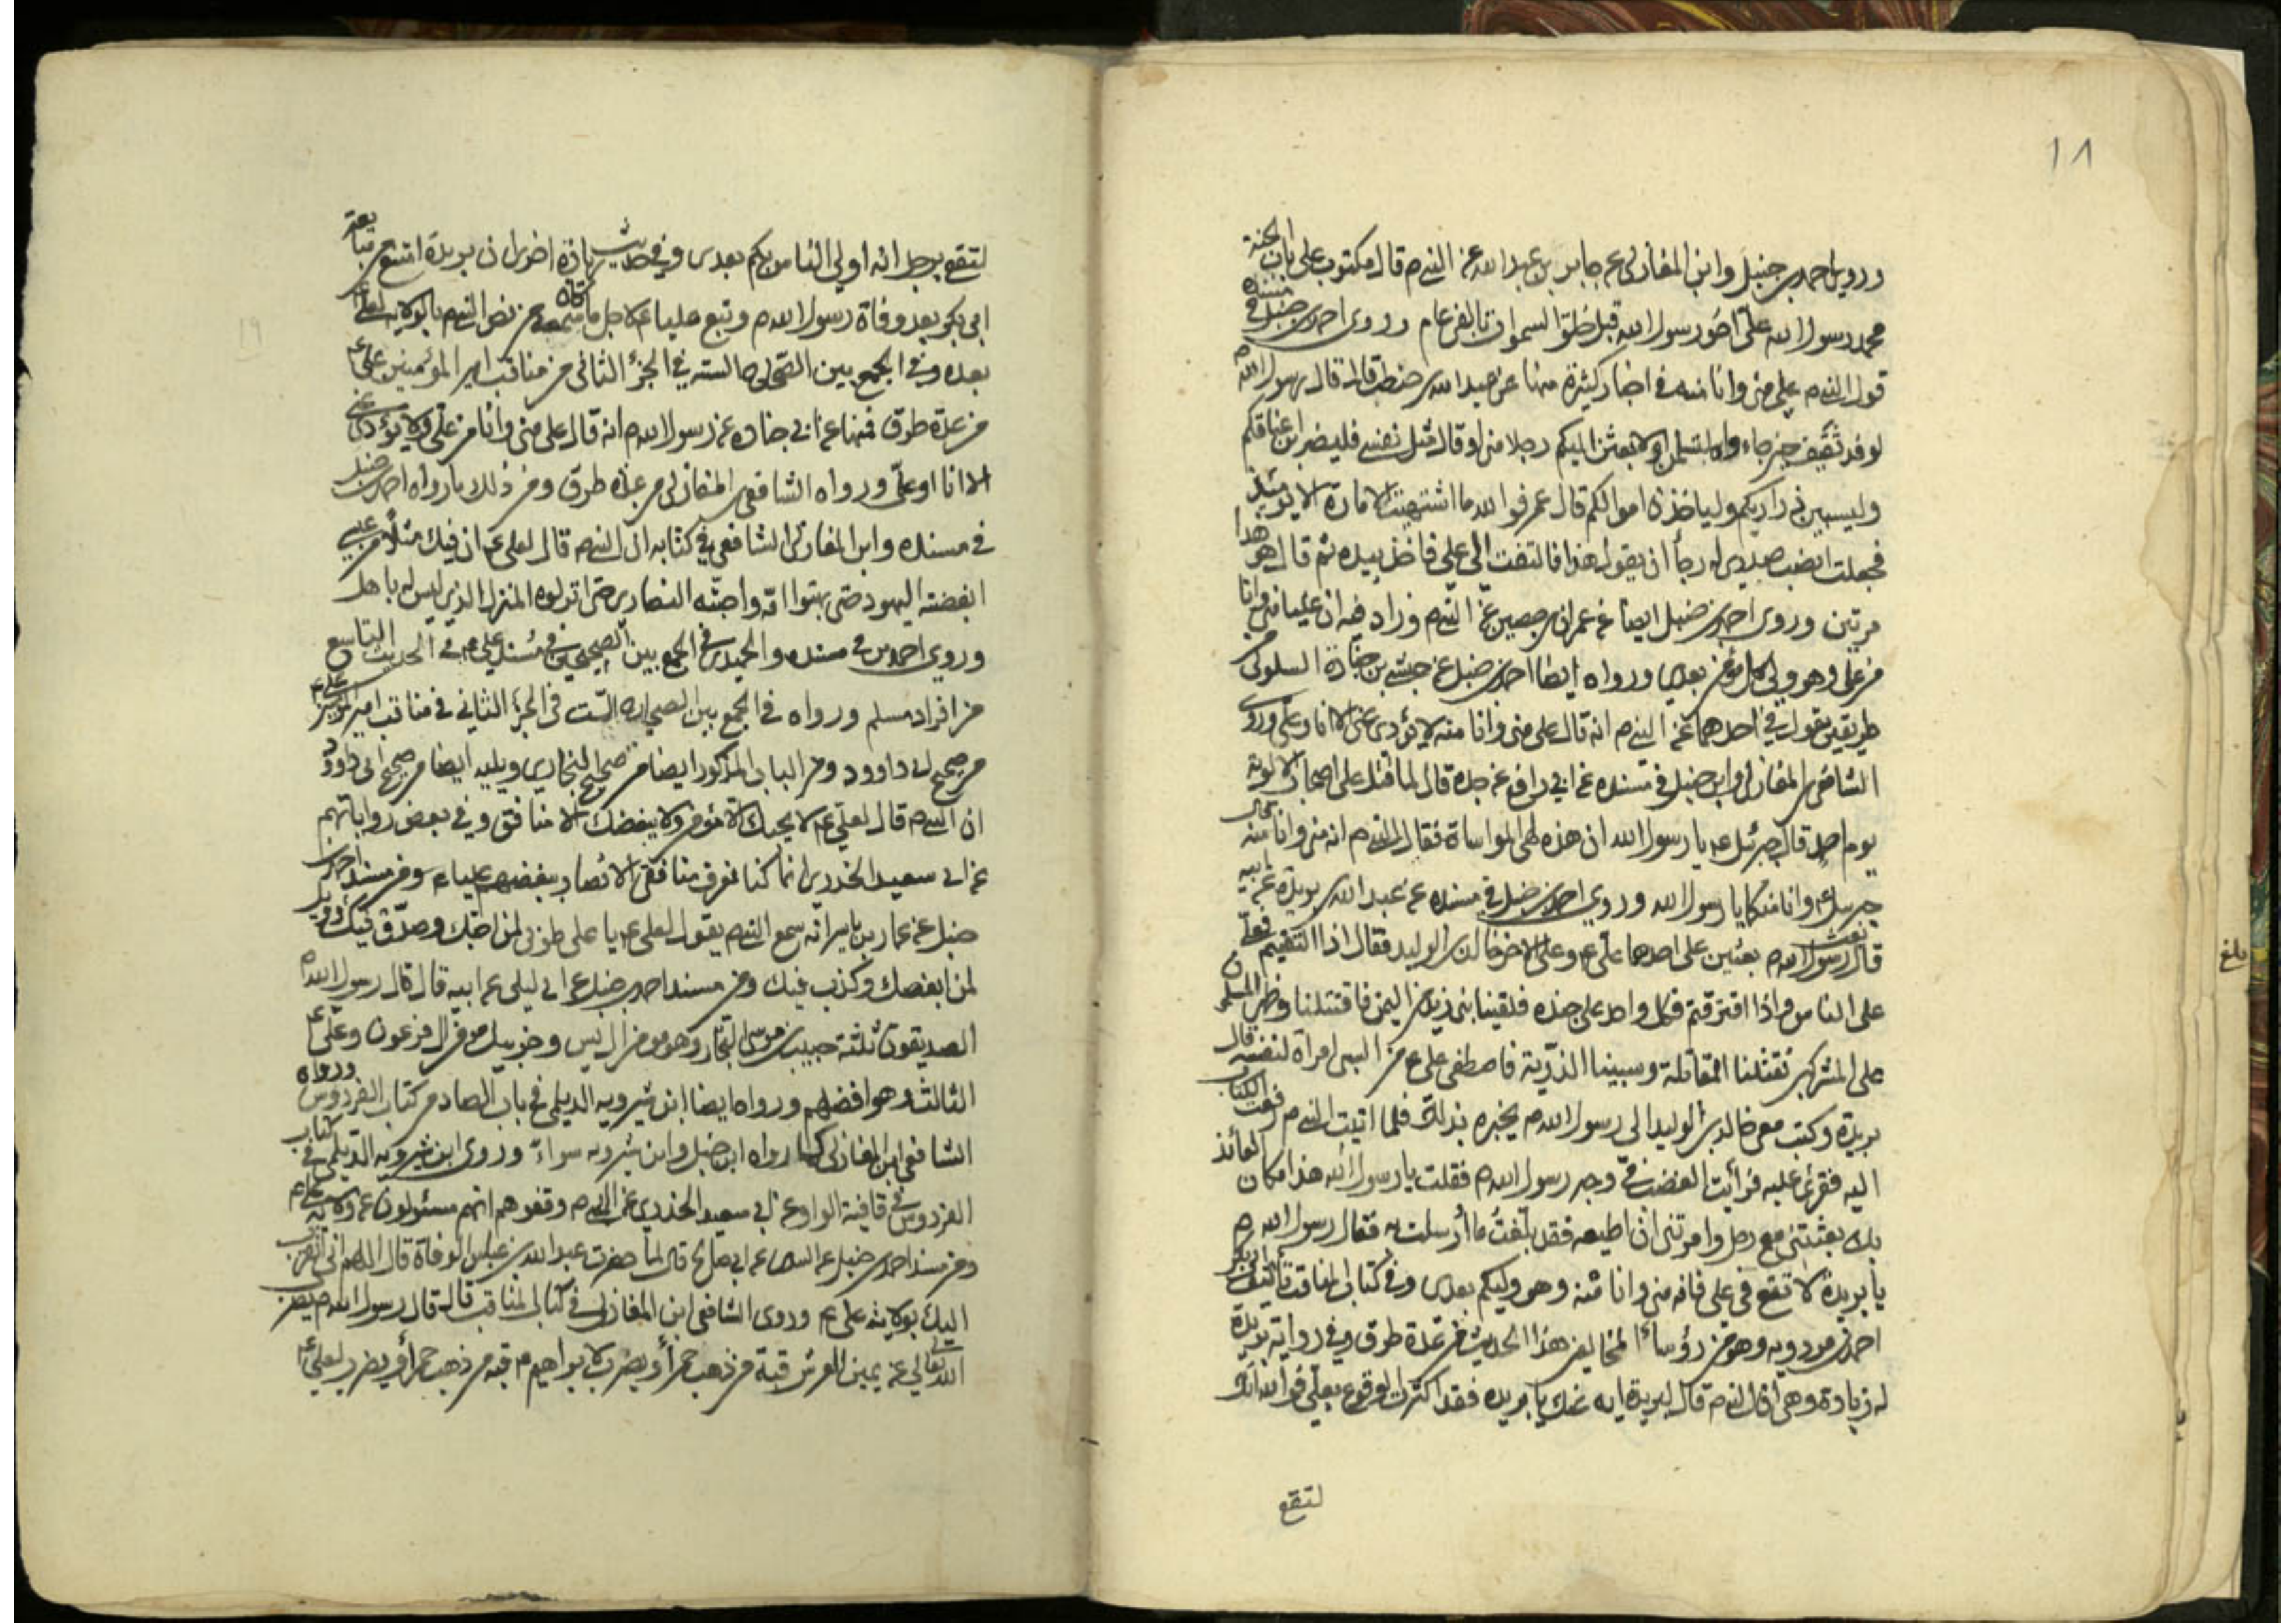 ١٨
وروى احمد بن حنبل وابن المغازلى عن جابر بن عبد الله عن النبى م قال مكتوب على باب الجنة
محمد رسول الله على اخو رسول الله قبل خلق السموات بالفى عام وروى احمد بن حنبل فى مسنده
قول النبى م على منى وانا منه فى اخبار كثيرة منها عن عبد الله بن حنطب قال قال رسول الله م
لوفد ثقيف حين جاءوا والله لتسلمن او لابعثن اليكم رجلا منى او قال مثل نفسى فليضربن اعناقكم
وليسبين ذراريكم ولياخذن اموالكم قال عمر فوالله ما اشتهيت الامارة الا يومئذ
فجعلت انصب صدرى له رجاً ان يقول هذا فالتفت الى على فاخذ بيده ثم قال هو هذا
مرتين وروى احمد بن حنبل ايضا عن عمران بن حصين عن النبى م وزاد فيه ان عليا منى وانا
من على وهو ولى كل مؤمن بعدى ورواه ايضا احمد بن حنبل عن حبشى بن جنادة السلولى من
طريقين يقول فى احدهما عن النبى م انه قال على منى وانا منه لا يؤدى عنى الا انا وعلى وروى
الشافعى ابن المغازلى وابن حنبل فى مسنده عن ابى رافع عن جده قال لما قتل على اصحاب الالوية
يوم احد قال جبرئيل ع يا رسول الله ان هذه لهى المواساة فقال النبى م انه منى وانا منه فقال
جبرئيل ع وانا منكما يا رسول الله وروى احمد بن حنبل فى مسنده عن عبد الله بن بريدة عن ابيه
قال بعث رسول الله م بعثين على احدهما على ع وعلى الاخر خالد بن الوليد فقال اذا التقيتم فعلى
على الناس واذا افترقتم فكل واحد على جنده فلقينا بنى زيد من اليمن فاقتتلنا وظهر المسلمون
على المشركين فقتلنا المقاتلة وسبينا الذرّية فاصطفى على ع من السبى امراة لنفسه قال
بريدة وكتب معى خالد بن الوليد الى رسول الله م يخبره بذلك فلما اتيت النبى م دفعت الكتاب
اليه فقرئ عليه فرأيت الغضب فى وجه رسول الله م فقلت يا رسول الله هذا مكان العائذ
بك بعثتنى مع رجل وامرتنى ان اطيعه فقد بلّغتُ ما أرسلت به فقال رسول الله م
يا بريدة لا تقع فى على فانه منى وانا منه وهو وليكم بعدى وفى كتاب المناقب تأليف ابى بكر
احمد بن مردويه وهو من رؤساء المخالفين هذا الحديث من عدة طرق وفى رواية بريدة
له زيادة وهى ان النبى م قال لبريدة ايه عنك يا بريده فقد اكثرت الوقوع بعلى فوالله انك
لتقع
بلغ
١٩
لتقع برجل انه اولى الناس بكم بعدى وفى حديث زيادة اخرى ان بريدة امتنع من بيعة
ابى بكر بعد وفاة رسول الله م وتبع عليا ع لاجل ما كان سمعه من نص النبى م بالولاية لعلى ع
بعده وفى الجمع بين الصحاح الستة فى الجزء الثانى من مناقب امير المؤمنين على ع
من عدة طرق فمنها عن ابى جناده عن رسول الله م انه قال على منى وانا من على ولا يؤدى عنى
الا انا او على ورواه الشافعى ابن المغازلى من عدة طرق ومن ذلك ما رواه احمد بن حنبل
فى مسنده وابن المغازلى الشافعى فى كتابه ان النبى م قال لعلى ع ان فيك مثلا من عيسى
ابغضته اليهود حتى بهتوا امّه واحبّه النصارى حتى انزلوه المنزل الذى ليس له باهل
وروى احمد بن فى مسنده والحميدى فى الجمع بين الصحيحين فى مسند على ع فى الحديث التاسع
من افراد مسلم ورواه فى الجمع بين الصحاح الستّ فى الجزء الثانى فى مناقب امير المؤمنين على ع
من صحيح ابى داوود ومن الباب المذكور ايضا من صحيح البخارى ويليه ايضا من صحيح ابى داوود
ان النبى م قال لعلى ع لا يحبك الا مؤمن ولا يبغضك الا منافق وفى بعض رواياتهم
عن ابى سعيد الخدرى انما كنا نعرف منافقى الانصار ببغضهم عليا ع ومن مسند احمد بن
حنبل عن عمار بن ياسر انه سمع النبى م يقول لعلى ع يا على طوبى لمن احبك وصدّق فيك وويل
لمن ابغضك وكذب فيك ومن مسند احمد بن حنبل عن ابى ليلى عن ابيه قال قال رسول الله م
الصديقون ثلثة حبيب بن موسى النجار وهو مؤمن ال يس وحزبيل مؤمن ال فرعون وعلى ع
الثالث وهو افضلهم ورواه ايضا ابن شيرويه الديلمى فى باب الصاد من كتاب الفردوس ورواه
الشافعى ابن المغازلى كما رواه ابن حنبل وابن شيرويه سواء وروى ابن شيرويه الديلمى فى كتاب
الفردوس فى قافية الواو عن ابى سعيد الخدرى عن النبى م وقفوهم انهم مسئولون عن ولاية على ع
ومن مسند احمد بن حنبل عن عن ابى صالح قال لما حضرت عبد الله بن عباس الوفاة قال اللهم انى اتقرب
اليك بولاية على ع وروى الشافعى ابن المغازلى فى كتاب المناقب قال قال رسول الله م يضرب
الله تعالى عن يمين العرش قبة من ذهب حمراء ويضرب لابراهيم ع قبة من ذهب حمراء ويضرب لعلى ع